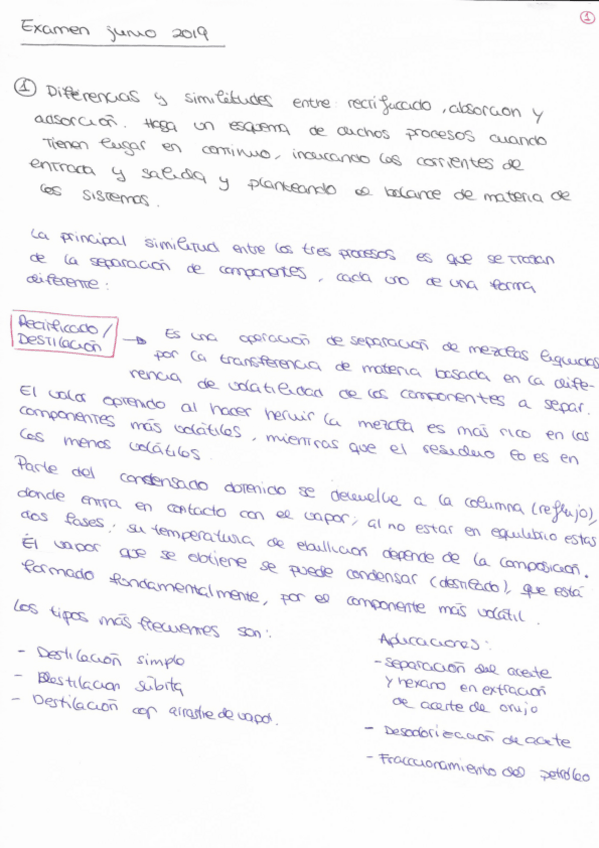 1
Examen junio 2019
① Diferencias y similitudes entre rectificado, absorcion y
adsorción. Haga un esquema de dichos procesos cuando
tienen lugar en continuo, indicando las corrientes de
entrada y salida y planteando el balance de materia de
los sistemas.
La principal similitud entre los tres procesos es que se tratan
de la separación de componentes, cada uno de una forma
diferente:
Rectificado /
Destilación
→ Es una operación de separación de mezclas líquidas
por la transferencia de materia basada en la dife-
rencia de volatilidad de los componentes a separ.
El valor obtenido al hacer hervir la mezcla es más rico en los
componentes más volátiles, mientras que el residuo lo es en
los menos volátiles.
Parte del condensado obtenido se devuelve a la columna (reflujo),
donde entra en contacto con el vapor; al no estar en equilibrio estas
dos fases, su temperatura de ebullicion depende de la composición.
El vapor que se obtiene se puede condensar (destilado), que está
formado fundamentalmente, por el componente más volátil.
Los tipos más frecuentes son:
- Destilación simple
- Destilacion súbita
- Destilación con arrastre de vapor.
Aplicaciones:
- Separación del aceite
y hexano en extracción
de aceite de orujo
- Desodorización de aceite
- Fraccionamiento del petróleo